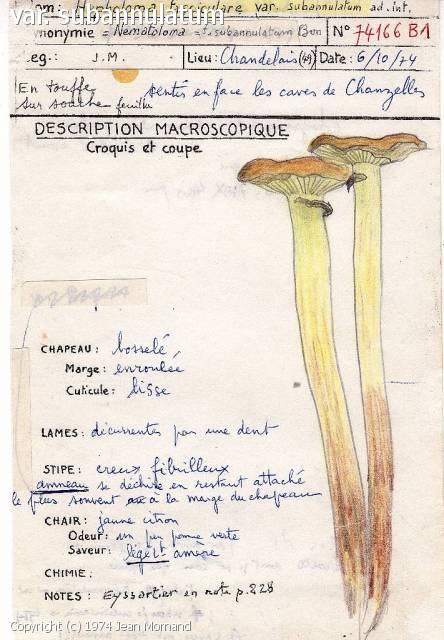 var. subannulatum
Nom: Hypholoma fasciculare var. subannulatum ad. int.
nonymie = Nematoloma = f. subannulatum Bon N° 74166 B1
eg.: J.M. Lieu: Chandelais (49) Date: 6/10/74
En touffe
sur souche feuillu sentis en face les caves de Chanzelles
DESCRIPTION MACROSCOPIQUE
Croquis et coupe
CHAPEAU: bosselé,
Marge: enroulée
Cuticule: lisse
LAMES: décurrentes par une dent
STIPE: creux fibrilleux
anneau se déchire en restant attaché
le plus souvent à la marge du chapeau
CHAIR: jaune citron
Odeur: un peu pomme verte
Saveur: légèt amère
CHIMIE:
NOTES: Eyssartier en note p. 228
Copyright (c) 1974 Jean Mornand